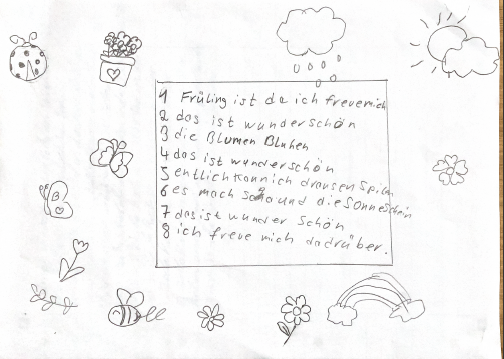 1 Früling ist da ich freue mich
2 das ist wunderschön
3 die Blumen Bluhen
4 das ist wunderschön
5 entlich kann ich drausen Spielen
6 es mach und die Sonne Schein
7 das ist wunder Schön
8 ich freue mich dadrüber.